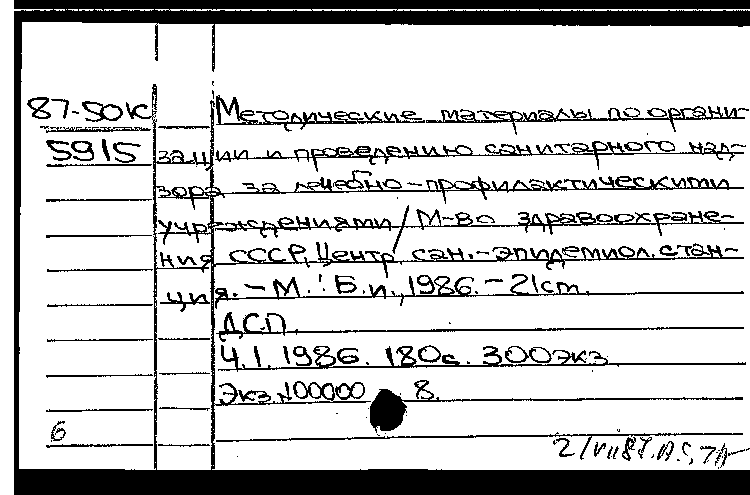 87-50К Методические материалы по органи-
5915 зации и проведению санитарного над-
зора за лечебно-профилактическими
учреждениями/М-во здравоохране-
ния СССР, Центр. сан.-эпидемиол. стан-
ция. - М.: Б.и., 1986. - 21 см.
ДСП.
Ч.1. 1986. 180с. 300экз.
Экз.№00000 8.
6
2/VII87.